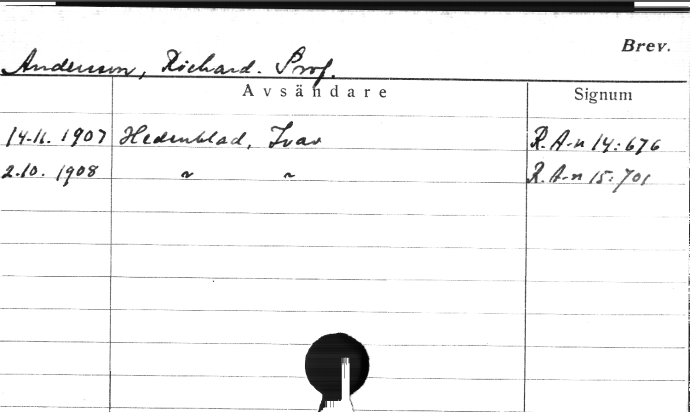 Brev.
Andersson, Richard. Prof.
Avsändare Signum
14.11.1907 Hedenblad, Ivar R.A-n 14:676
2.10.1908 " " R.A-n 15:701